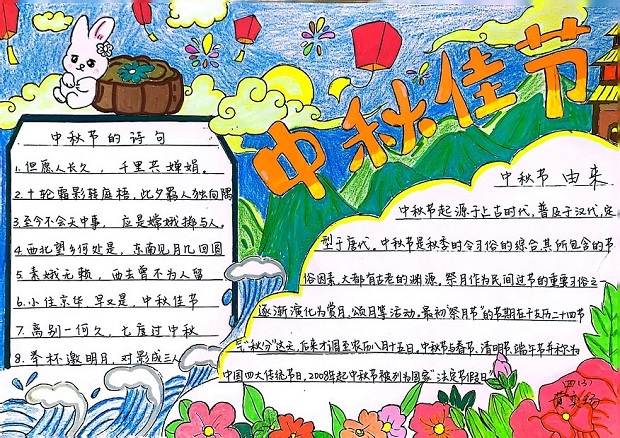 中秋佳节
中秋节的诗句
1.但愿人长久，千里共婵娟。
2.十轮霜影转庭梧，此夕羁人独向隅
3.至今不会天中事，应是嫦娥掷与人。
4.西北望乡何处是，东南见月几回圆
5.素娥无赖，西去曾不为人留
6.小住京华，早又是，中秋佳节
7.离别一何久，七度过中秋
8.举杯邀明月，对影成三人
中秋节 由来
中秋节起源于上古时代，普及于汉代，定
型于唐代。中秋节是秋季时令习俗的综合，其所包含的节
俗因素，大都有古老的渊源。祭月作为民间过节的重要习俗之一
逐渐演化为赏月、颂月等活动。最初"祭月节"的节期在干支历二十四节
气"秋分"这天，后来才调至农历八月十五日。中秋节与春节、清明节、端午节并称为
中国四大传统节日。2008年起中秋节被列为国家"法定节假日"
四(3)